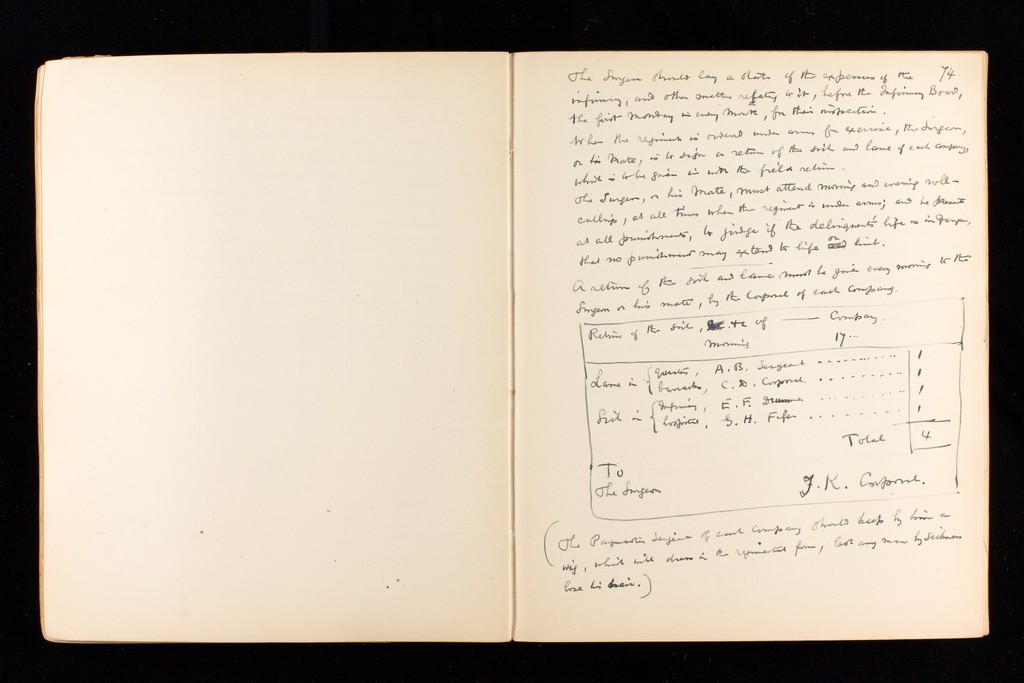 74.
The Surgeon should lay a state of the expenses of the
infirmary, and other matters relating to it, before the Infirmary Board,
the first Monday in every month, for their inspection.
When the regiment is ordered under arms for exercise, the Surgeon,
or his Mate, is to sign a return of the sick and lame of each company,
which is to be given in with the field return.
The Surgeon, or his Mate, must attend morning and evening roll-
callings, at all times when the regiment is under arms; and be present
at all punishments, to judge if the delinquent's life is in danger,
that no punishment may extend to life or limb.
A return of the sick and lame must be given every morning to the
Surgeon or his mate, by the Corporal of each company.
Return of the sick, &c of —— Company.
Morning 17...
Lame in { quarters, A.B. Sergeant .......... 1
barracks, C.D. Corporal .......... 1
Sick in { Infirmary, E.F. Drummer .......... 1
hospital, G.H. Fifer .......... 1
Total 4
To
The Surgeon
J.K. Corporal.
(The Paymaster Sergeant of each company should keep by him a
wig, which will dress in the regimental form, lest any man by sickness
lose his hair.)